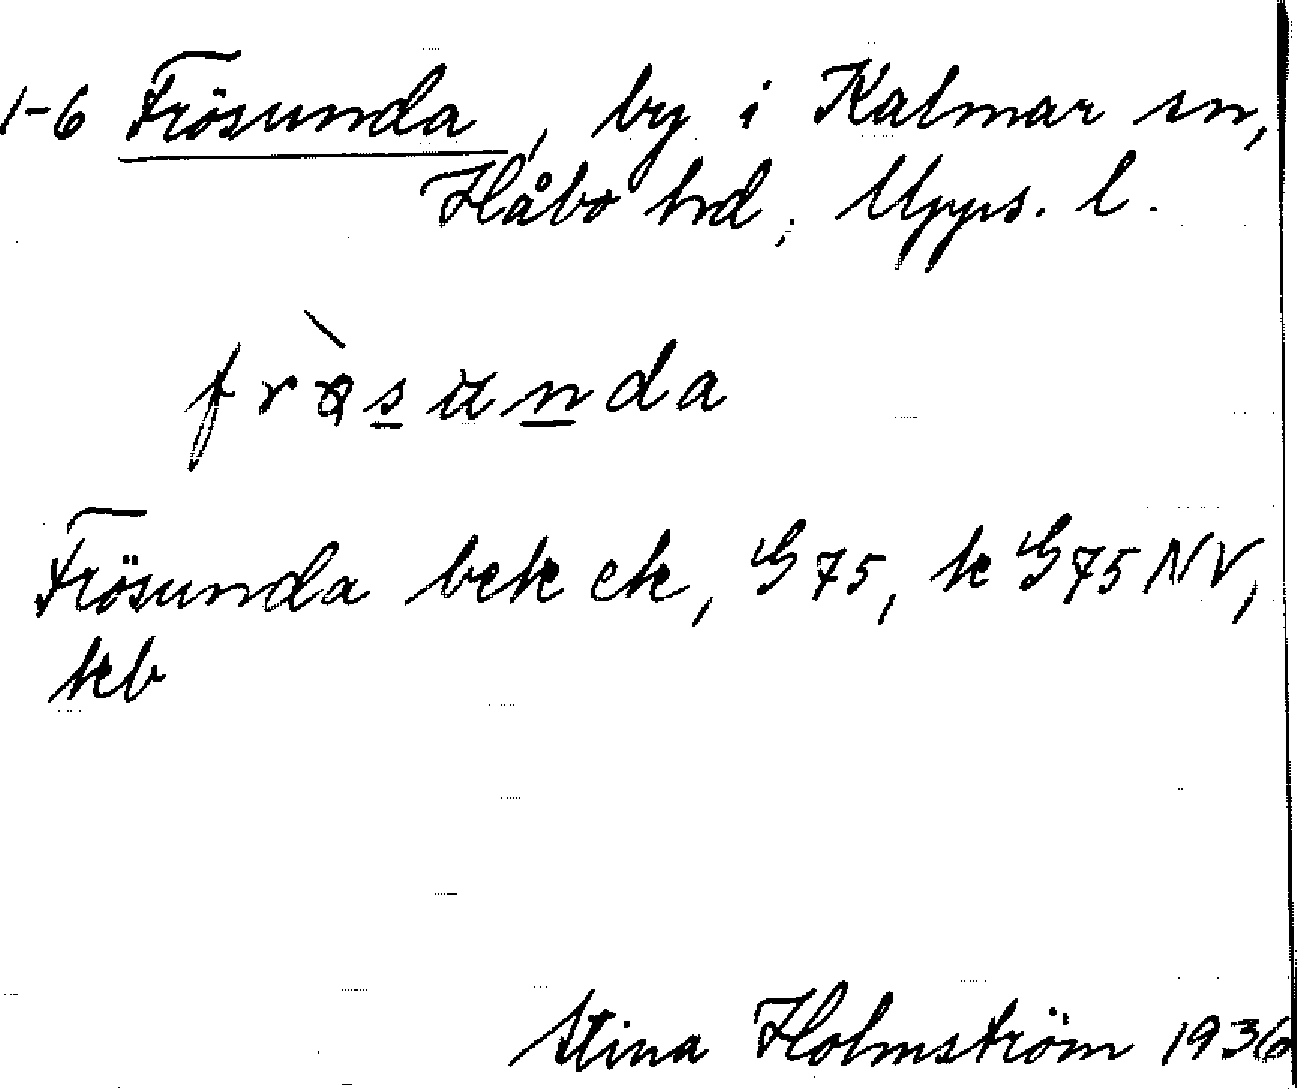 1-6 Frösunda, by i Kalmar sn,
Håbo hd, Upps. l.
Frösunda bek ek, G 75, k G 75 NV,
kb
Stina Holmström 1936